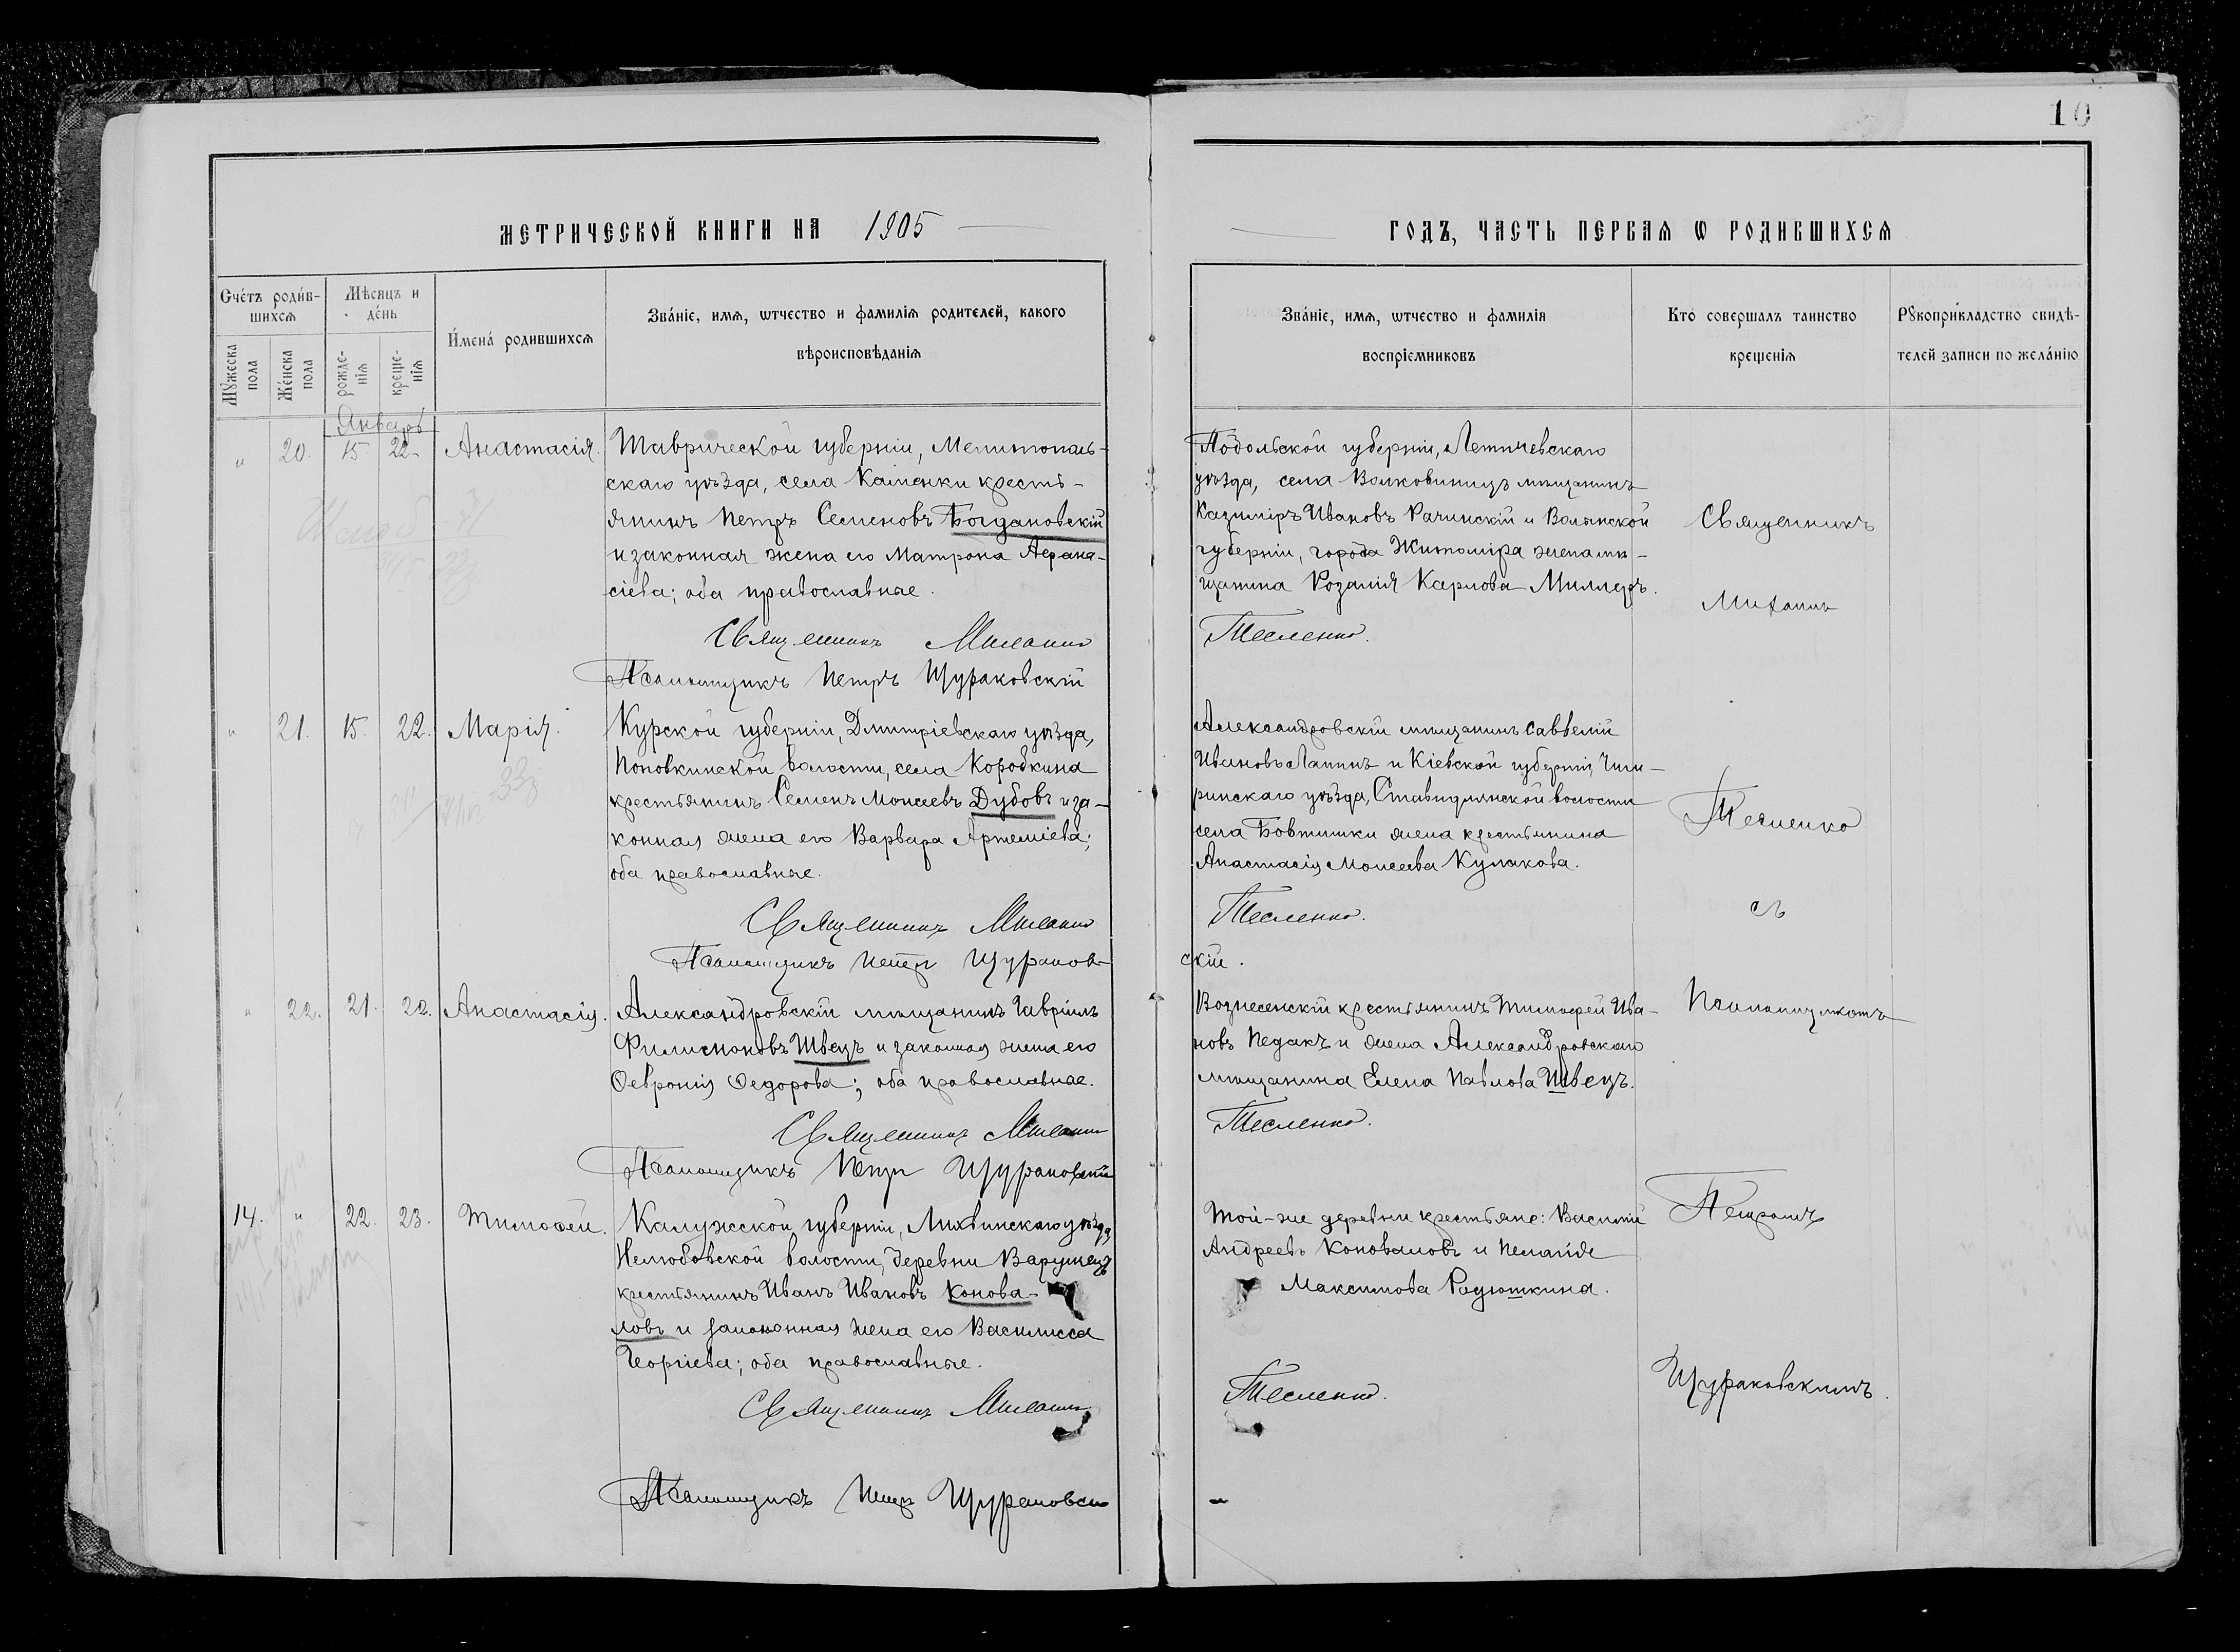 10
МЕТРИЧЕСКОЙ КНИГИ НА 1905
ГОДЪ, ЧАСТЬ ПЕРВАЯ Ѡ РОДИВШИХСЯ
Счетъ родившихся
Мѣсяцъ и день
Имена родившихся
Званіе, имя, ѡтчество и фамилія родителей, какого
вѣроисповѣданія
Мꙋжеска пола
Женска пола
рожденія
крещенія
Званіе, имя, ѡтчество и фамилія
воспріемниковъ
Кто совершалъ таинство
крещенія
Рꙋкоприкладство свидѣ-
телей записи по желанію
Январь
" 20. 15. 22. Анастасія.
Таврической губерніи, Мелитополь-
скаго уѣзда, села Каменки кресть-
янинъ Петръ Семеновъ Богдановскій
и законная жена его Матрона Аѳана-
сіева; оба православные.
Священникъ Михаилъ
Тесленко.
Псаломщикъ Петръ Щураковскій
Подольской губерніи, Летичевскаго
уѣзда, села Волковинецъ мѣщанинъ
Казиміръ Ивановъ Рачинскій и Волынской
губерніи, города Житоміра жена мѣ-
щанина Розалія Карлова Миллеръ.
" 21. 15. 22. Марія.
Курской губерніи, Дмитріевскаго уѣзда,
Поповкинской волости, села Коробкина
крестьянинъ Семенъ Моисеевъ Дубовъ и за-
конная жена его Варвара Артеміева;
оба православные.
Священникъ Михаилъ
Тесленко.
Псаломщикъ Петръ Щураков-
скій.
Александровскій мѣщанинъ Савелій
Ивановъ Лапинъ и Кіевской губерніи, Чиги-
ринскаго уѣзда, Ставидлянской волости
села Бовтышки жена крестьянина
Анастасія Моисеева Кулакова.
" 22. 21. 22. Анастасія.
Александровскій мѣщанинъ Гавріилъ
Филимоновъ Швецъ и законная жена его
Ѳевронія Ѳедорова; оба православные.
Священникъ Михаилъ
Тесленко.
Псаломщикъ Петръ Щураковскій
Вознесенскій крестьянинъ Тимоѳей Ива-
новъ Педакъ и жена Александровскаго
мѣщанина Елена Павлова Швецъ.
14. " 22. 23. Тимоѳей.
Калужской губерніи, Лихвинскаго уѣзда,
Нелюбовской волости, деревни
крестьянинъ Иванъ Ивановъ Конова-
ловъ и законная жена его Василисса
Георгіева; оба православные.
Священникъ Михаилъ
Тесленко.
Псаломщикъ Петръ Щураковскій
Той-же деревни крестьяне: Василій
Андреевъ Коноваловъ и Пелагія
Максимова Радюшкина.
Священникъ
Михаилъ
Тесленко
съ
Псаломщикомъ
Петромъ
Щураковскимъ.